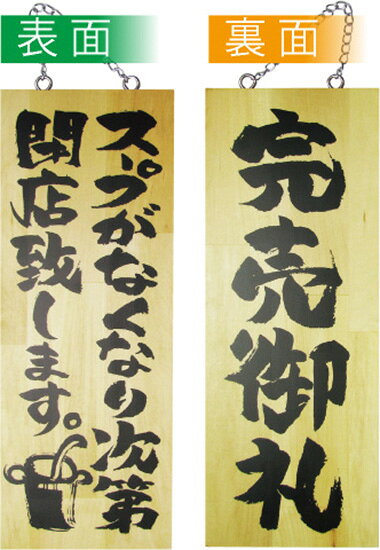 表面
スープがなくなり次第
閉店致します。
裏面
完売御礼